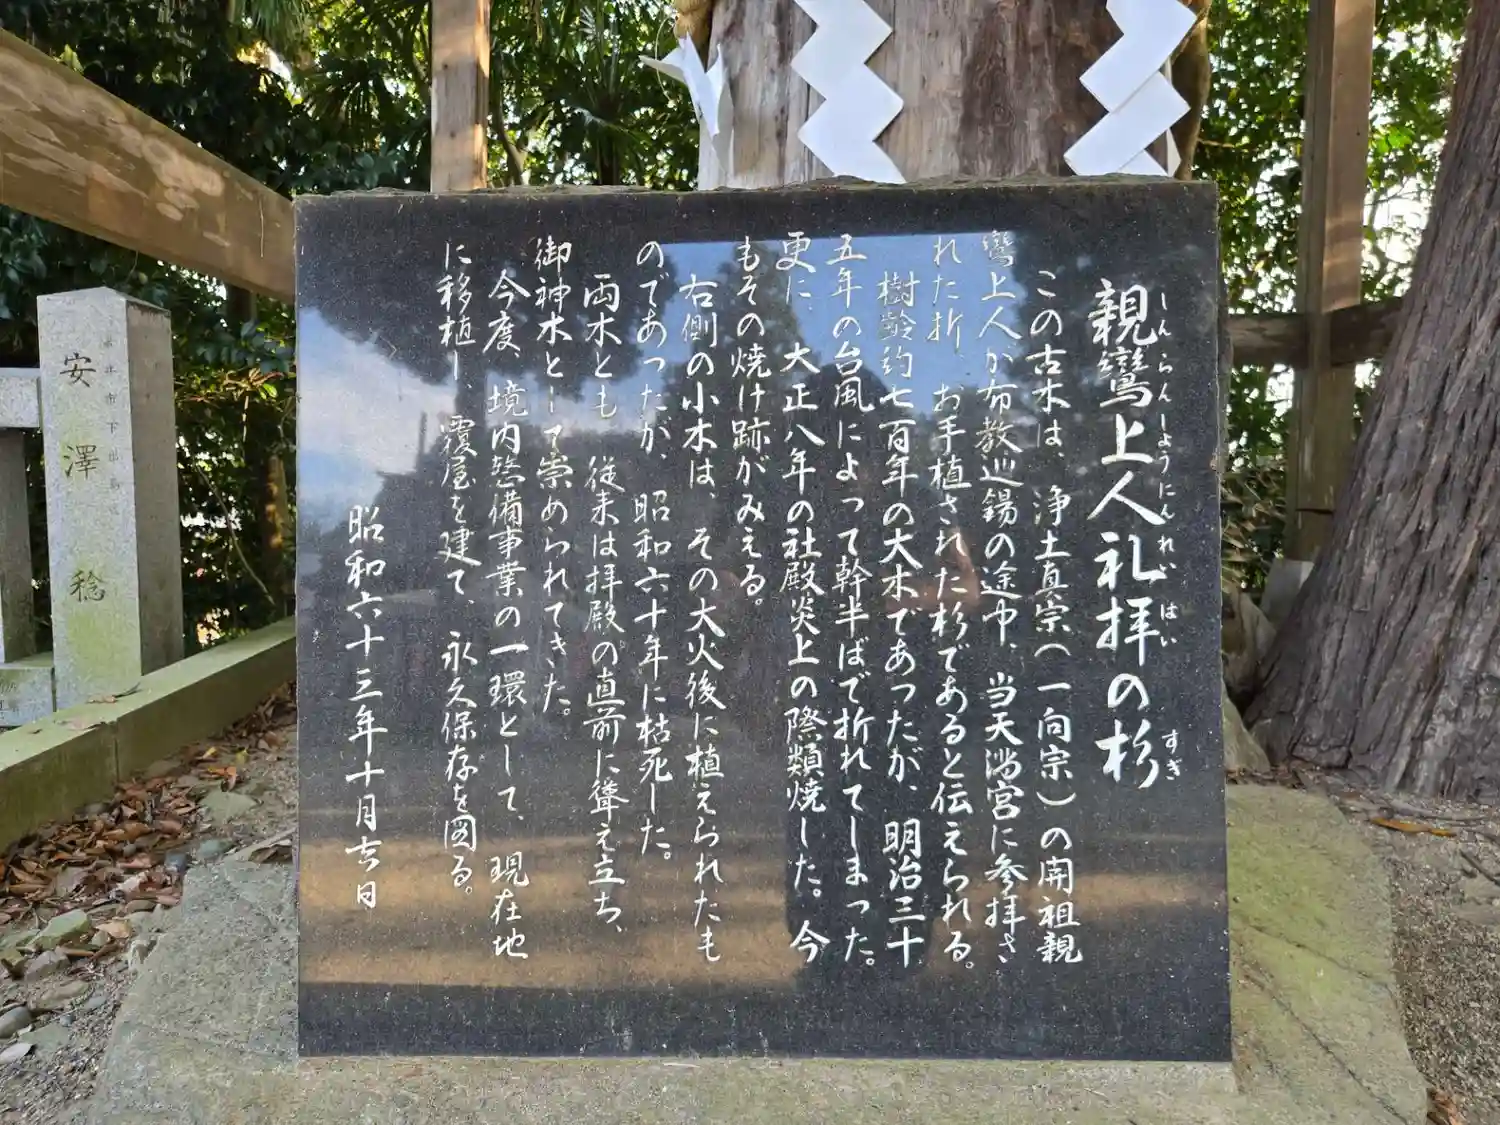 親鸞上人礼拝の杉
しんらんしょうにんれいはい すぎ
この古木は、浄土真宗(一向宗)の開祖親
鸞上人が布教巡錫の途中、当天満宮に参拝さ
れた折、お手植された杉であると伝えられる。
樹齢約七百年の大木であったが、明治三十
五年の台風によって幹半ばで折れてしまった。
更に、大正八年の社殿炎上の際類焼した。今
もその焼け跡がみえる。
右側の小木は、その大火後に植えられたも
のであったが、昭和六十年に枯死した。
両木とも、従来は拝殿の直前に聳え立ち、
御神木として崇められてきた。
今度、境内整備事業の一環として、現在地
に移植し、覆屋を建て、永久保存を図る。
昭和六十三年十月吉日
安澤稔